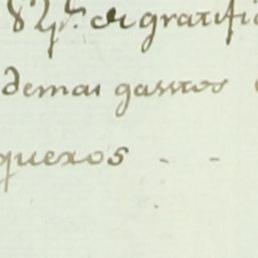 de gratifi
demas gasttos
quexos